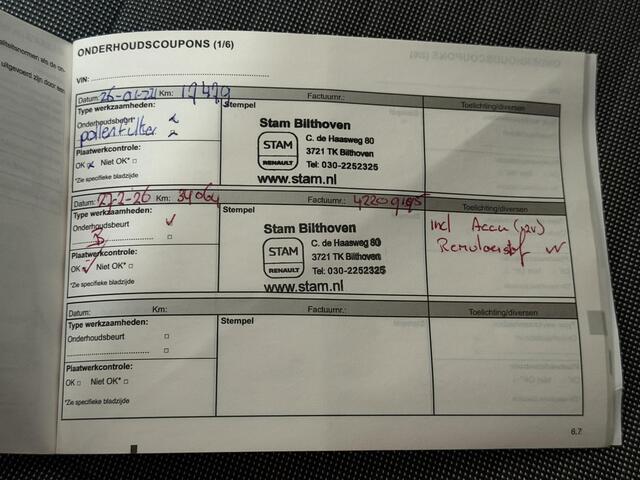 aliteitsnormen als de on-
uitgevoerd zijn door een
ONDERHOUDSCOUPONS (1/6)
VIN:
Datum: Km: 17479 Factuurnr.: Toelichting/diversen
Type werkzaamheden:
Onderhoudsbeurt x
pollenfilter x
Plaatwerkcontrole:
OK x Niet OK* □
*Zie specifieke bladzijde
Stempel
Stam Bilthoven
STAM
RENAULT
C. de Haasweg 80
3721 TK Bilthoven
Tel: 030-2252325
www.stam.nl
Datum: 27-2-26 Km: 34064 Factuurnr.: Toelichting/diversen
Type werkzaamheden:
Onderhoudsbeurt ✓
B □
Plaatwerkcontrole:
OK ✓ Niet OK* □
*Zie specifieke bladzijde
Stempel
Stam Bilthoven
STAM
RENAULT
C. de Haasweg 80
3721 TK Bilthoven
Tel: 030-2252325
www.stam.nl
incl Accu (12V)
Remvloeistof
Datum: Km: Factuurnr.: Toelichting/diversen
Type werkzaamheden:
Onderhoudsbeurt □
□
Plaatwerkcontrole:
OK □ Niet OK* □
*Zie specifieke bladzijde
Stempel
6.7